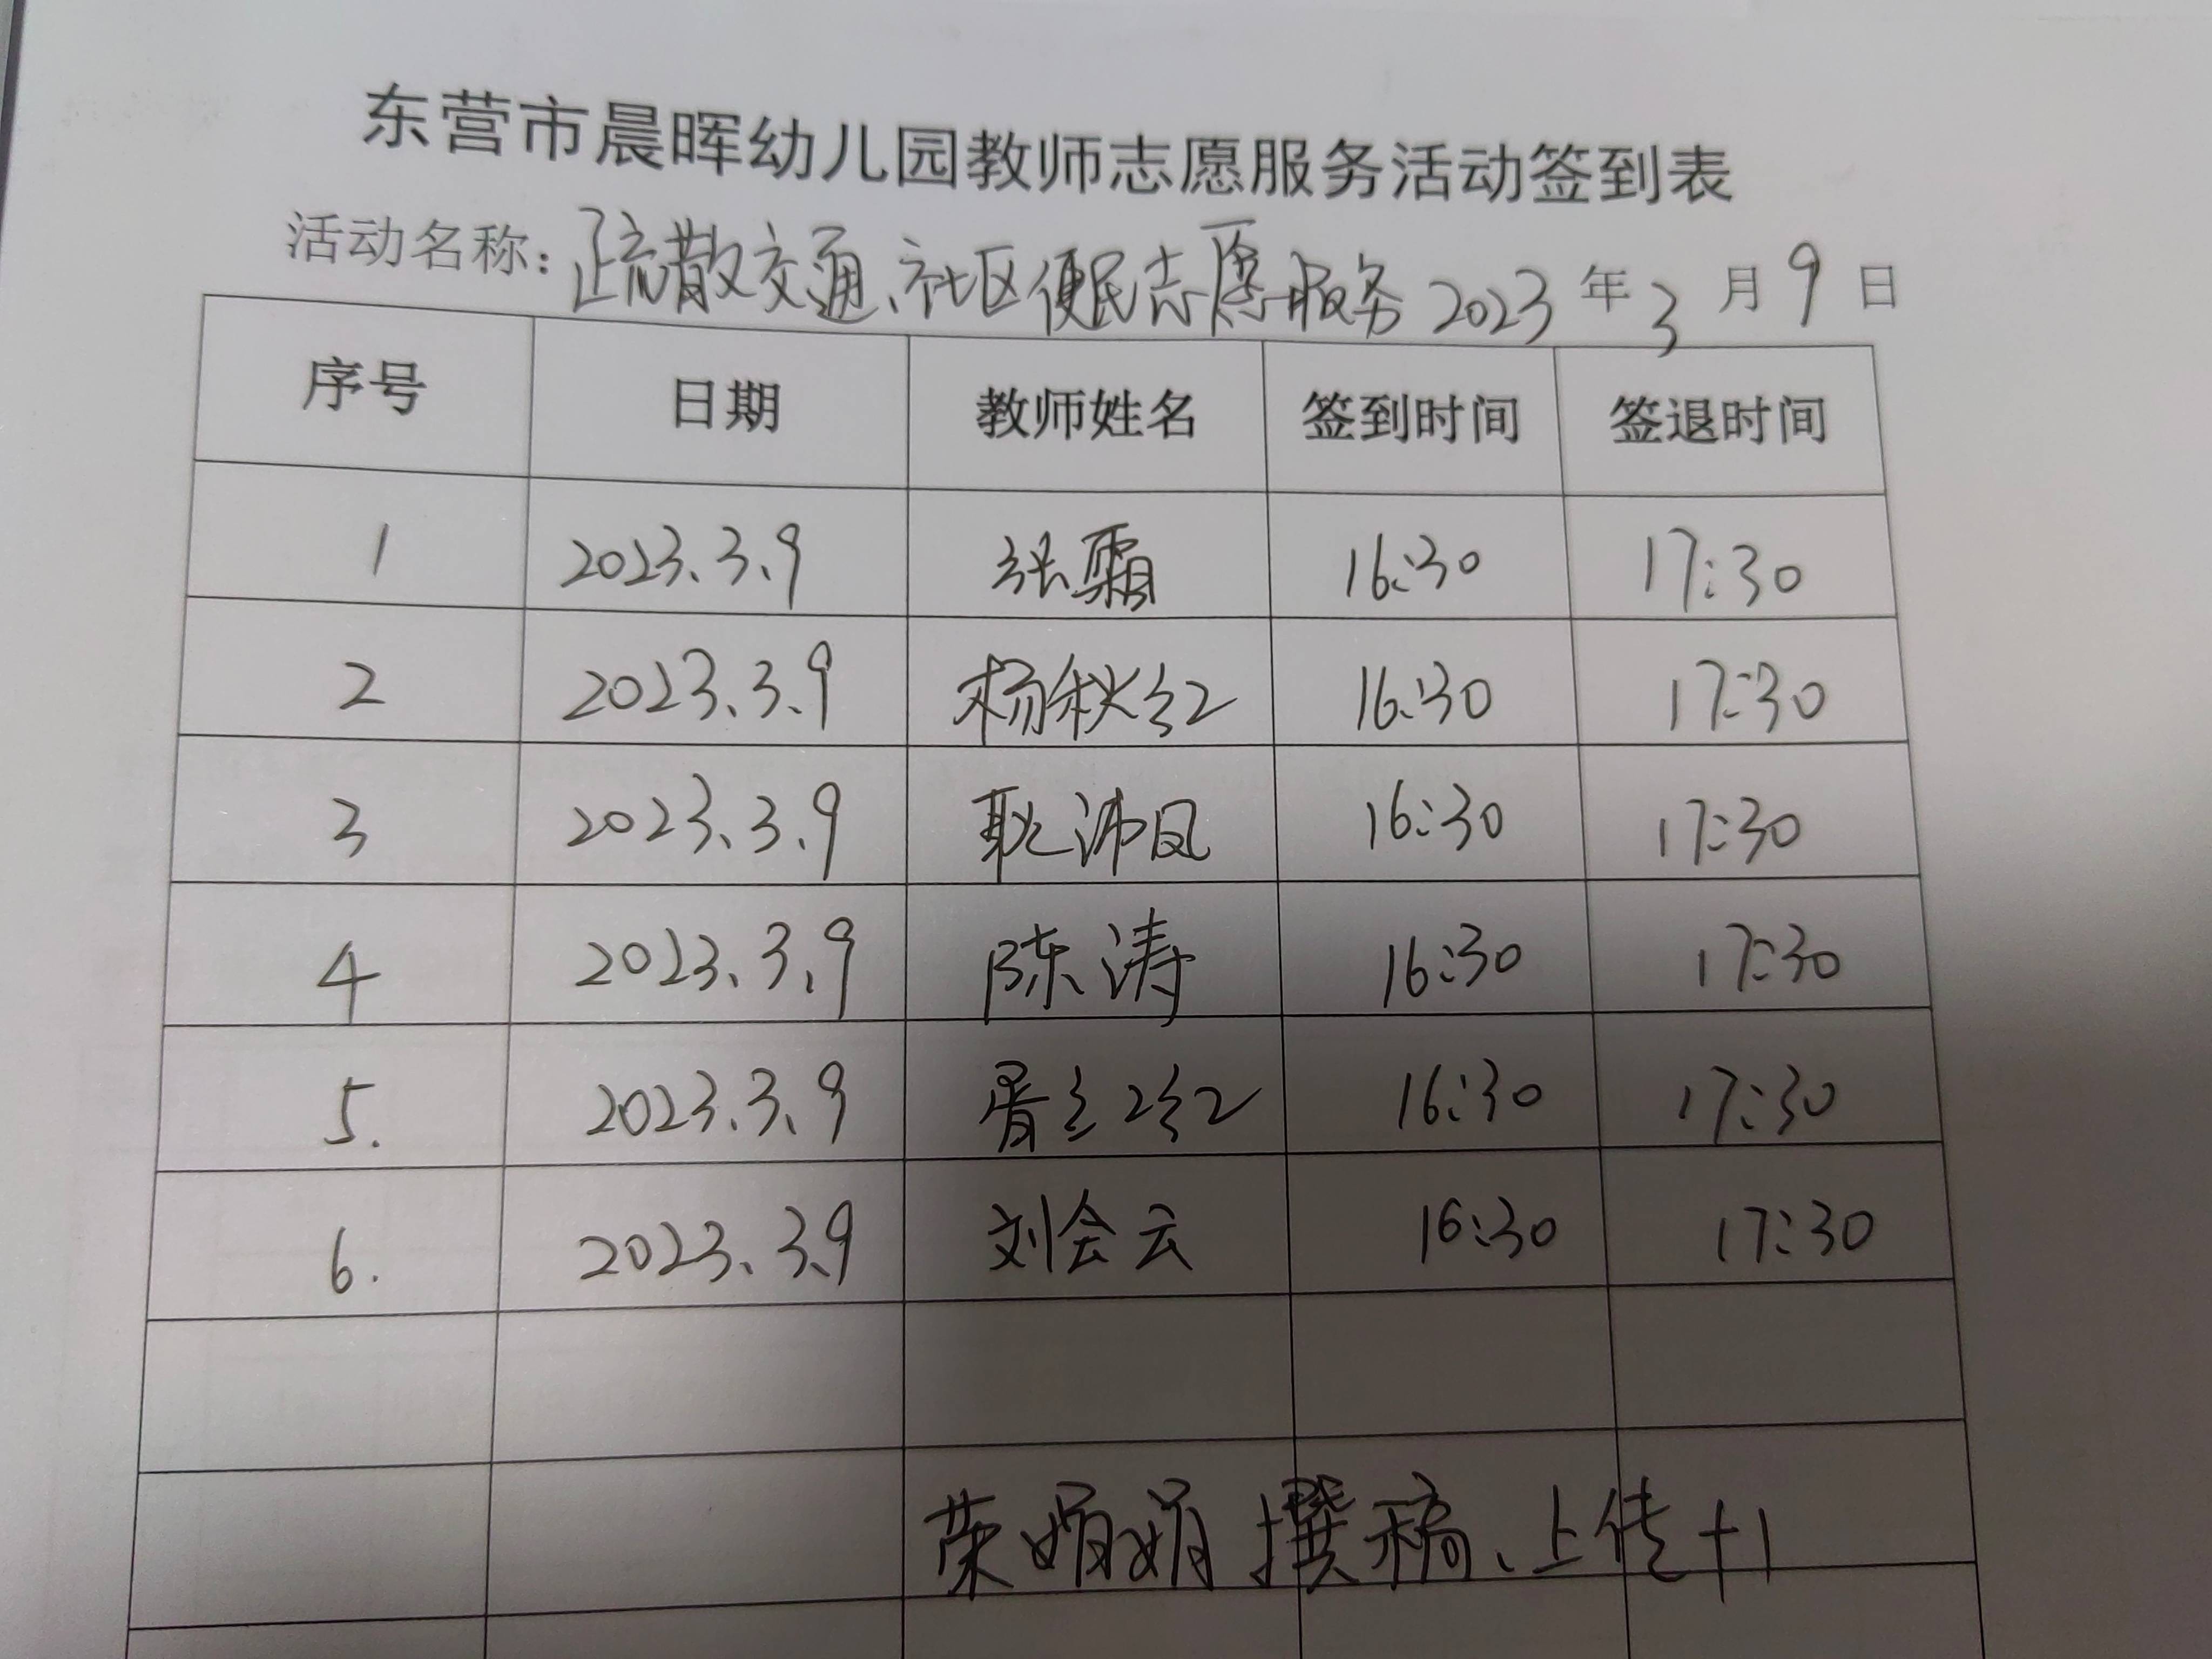 东营市晨晖幼儿园教师志愿服务活动签到表
活动名称：疏散交通、社区便民志愿服务 2023 年 3 月 9 日
序号 日期 教师姓名 签到时间 签退时间
1 2023.3.9 张霜 16:30 17:30
2 2023.3.9 杨秋红 16:30 17:30
3 2023.3.9 耿沛凤 16:30 17:30
4 2023.3.9 陈涛 16:30 17:30
5. 2023.3.9 胥红红 16:30 17:30
6. 2023.3.9 刘会云 16:30 17:30
荣娟娟 撰稿、上传+1